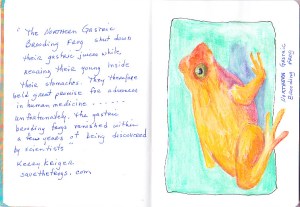 " The Northern Gastric
Brooding Frog shut down
their gastric juices while
rearing their young inside
their stomachs. They therefore
held great promise for advances
in human medicine ......
unfortunately, the gastric
brooding frogs vanished within
a few years of being discovered
by scientists
Kerry Kriger
savethefrogs.com
Northern Gastric
Brooding Frog